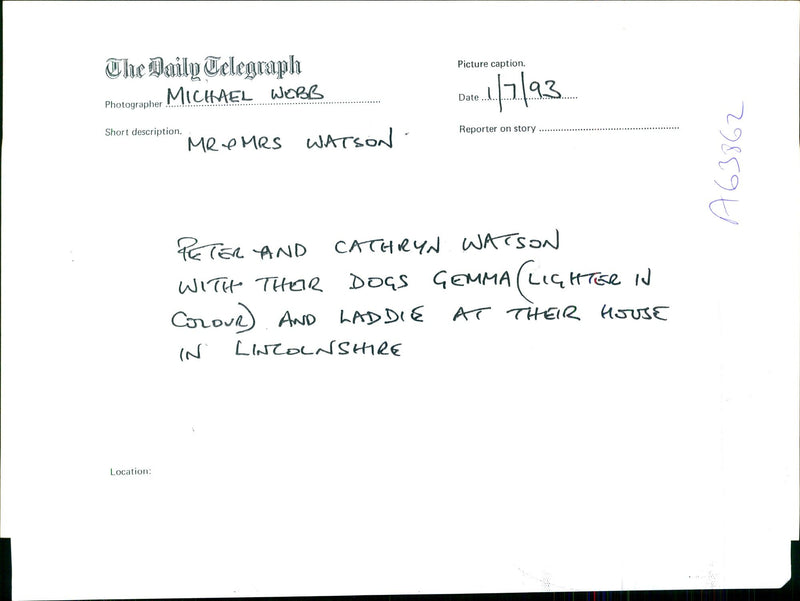 The Daily Telegraph
Picture caption.
Photographer MICHAEL WEBB
Date 1/7/93
Short description. MR & MRS WATSON
Reporter on story
A63862
PETER AND CATHRYN WATSON
WITH THEIR DOGS GEMMA (LIGHTER IN
COLOUR) AND LADDIE AT THEIR HOUSE
IN LINCOLNSHIRE
Location: